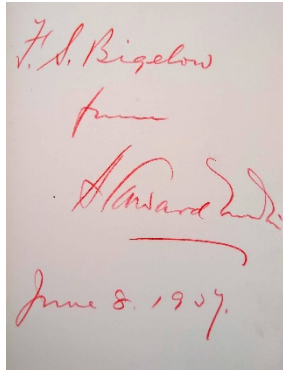 F. S. Bigelow
from
Howard
June 8. 1907.